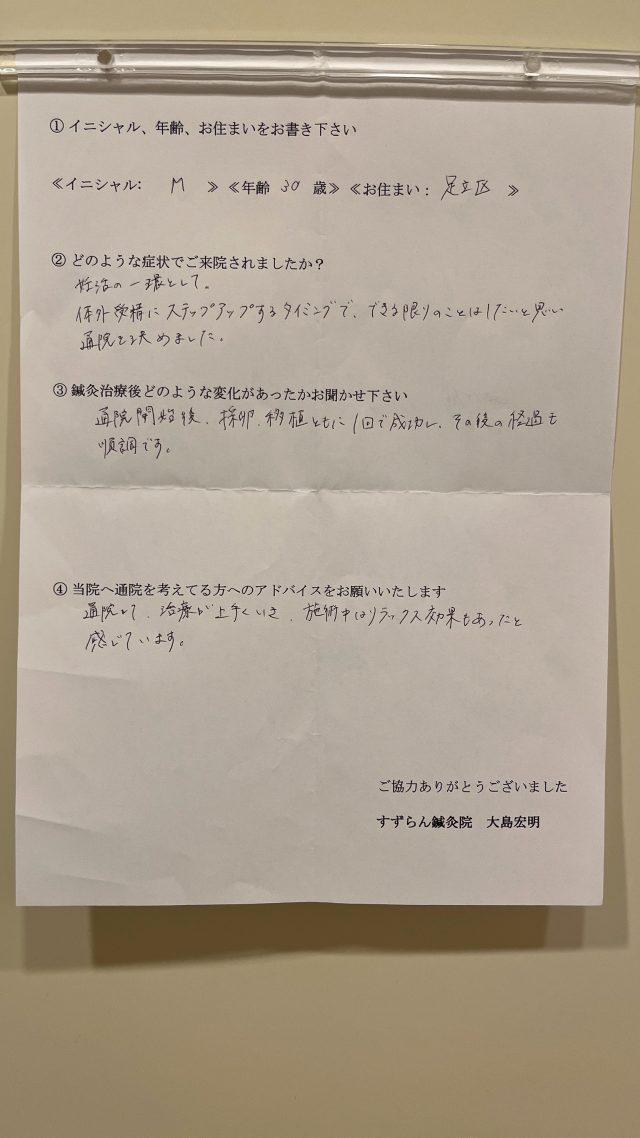 ① イニシャル、年齢、お住まいをお書き下さい
≪イニシャル: M ≫ ≪年齢 30 歳≫ ≪お住まい： 足立区 ≫
② どのような症状でご来院されましたか？
妊活の一環として。
体外受精にステップアップするタイミングで、できる限りのことはしたいと思い
通院を決めました。
③ 鍼灸治療後どのような変化があったかお聞かせ下さい
通院開始後、採卵、移植ともに1回で成功し、その後の経過も
順調です。
④ 当院へ通院を考えてる方へのアドバイスをお願いいたします
通院して、治療が上手くいき、施術中はリラックス効果もあったと
感じています。
ご協力ありがとうございました
すずらん鍼灸院 大島宏明